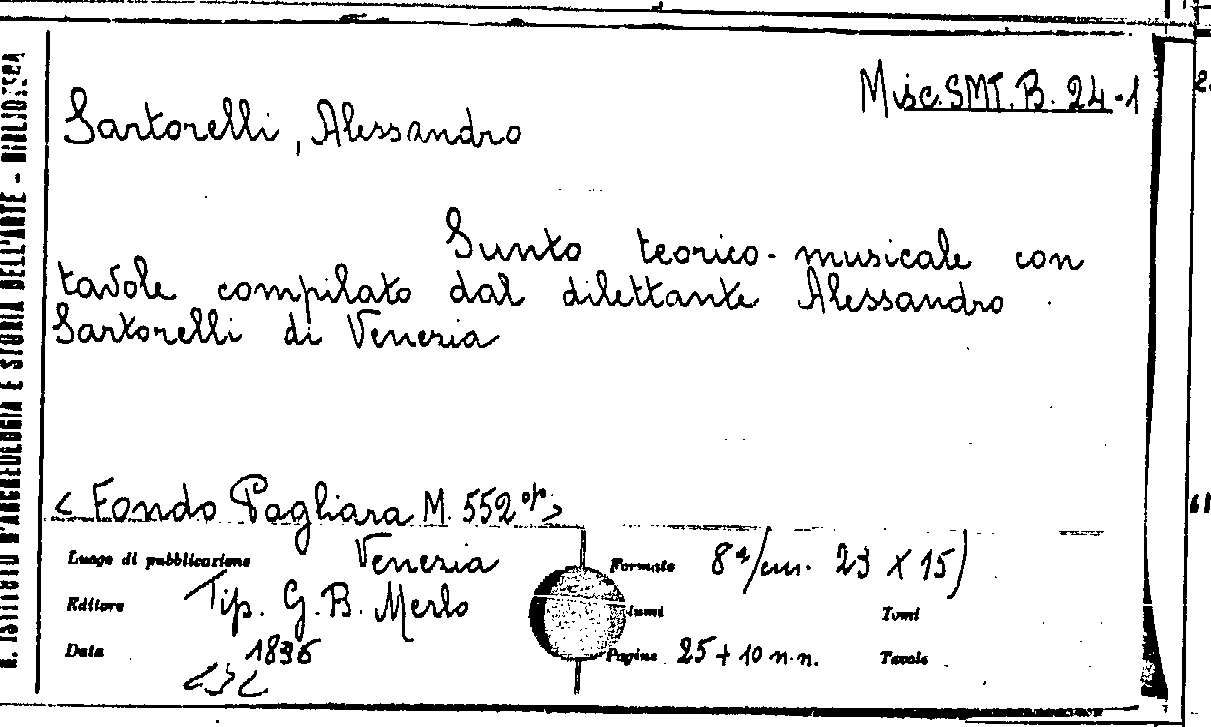 Misc. SMT. B. 24-1
Sartorelli, Alessandro
Sunto teorico-musicale con
tavole compilato dal dilettante Alessandro
Sartorelli di Venezia
< Fondo Pagliara M. 552 >
Luogo di pubblicazione Venezia
Formato 8°/cm. 23 X 15)
Editore Tip. G. B. Merlo
Tomi
Data
Pagine 25 + 10 n.n.
Tavole
R. ISTITUTO D'ARCHEOLOGIA E STORIA DELL'ARTE - BIBLIOTECA